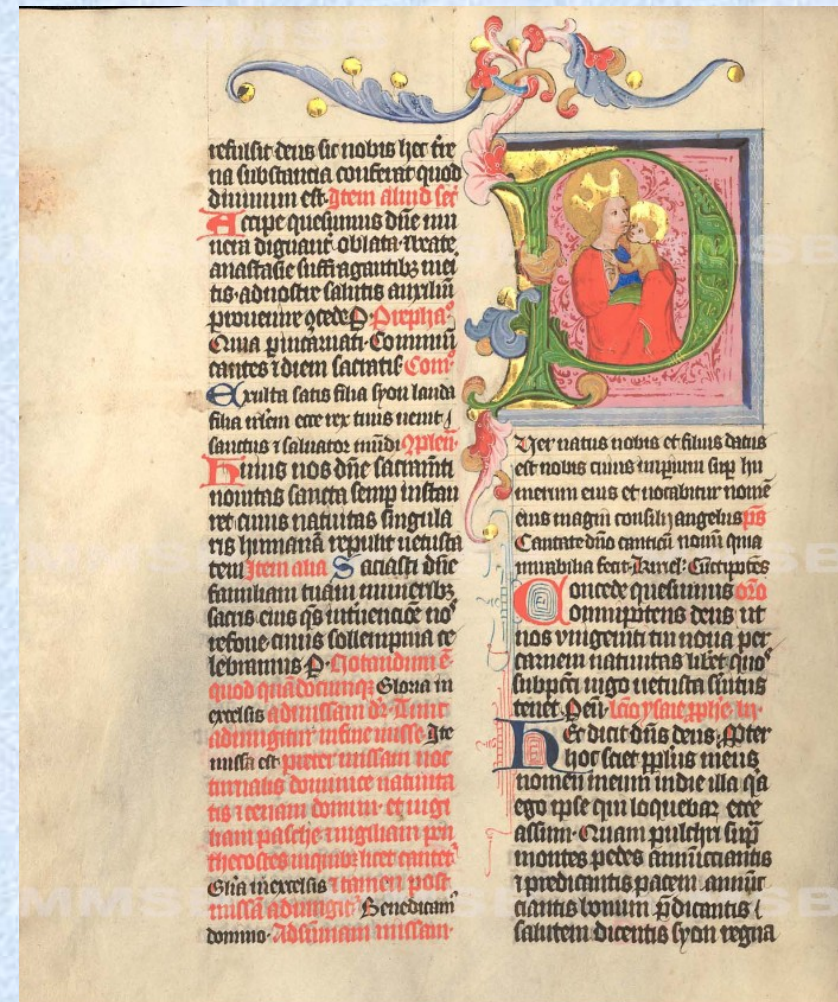 refulsit deus sic nobis hec tre
na substancia conferat quod
diuinum est. Item aliud secr
Accipe quesumus dne mu
nera dignant oblata beate
anastasie suffragantibz mei
tis adnostre salutis auxiliu
prouenire ꝯcede P. Prepha
Quia p incarnati. Commui
cantes ⁊ diem sacratis Com
Exulta satis filia syon lauda
filia irlem ecce rex tuus uenit
sanctus ⁊ saluator mudi ꝯplen
Huius nos dne sacramti
nouitas sancta semp instau
ret cuius natiuitas singula
ris humana repulit uetusta
tem Item alia Saciasti dne
familiam tuam muneribz
sacris eius qs intuencioe nos
refoue cuius sollempnia ce
lebramus P. Notandum e
quod quadocumqz Gloria in
excelsis admissam dr Tunc
adiungitur in fine misse Ite
missa est preter missam noc
turnalis dominice natiuita
tis ⁊ cenam domini et uigi
liam pasche ⁊ uigiliam pen
thecostes in quibz licet cantet
Glia in excelsis ⁊ tamen post
missa adiungit Benedicam
domino. Ad summam missam
Puer natus nobis et filius datus
est nobis cuius imperium sup hu
merum eius et uocabitur nome
eius magni consilij angelus ps
Cantate dno canticu nouu quia
mirabilia fecit. Kyriel. Cuctipotes
Concede quesumus oro
omnipotens deus ut
nos vnigeniti tui noua per
carnem natiuitas libet quos
sub pcti iugo uetusta seruitus
tenet. P eu. lcio ysaie pphe in
Hec dicit dns deus Ppter
hoc sciet pplus meus
nomen meum in die illa qa
ego ipse qui loquebar ecce
assum. Quam pulchri sup
montes pedes annucciantis
⁊ predicantis pacem annuc
ciantis bonum pdicantis
salutem dicentis syon regna
MMSB